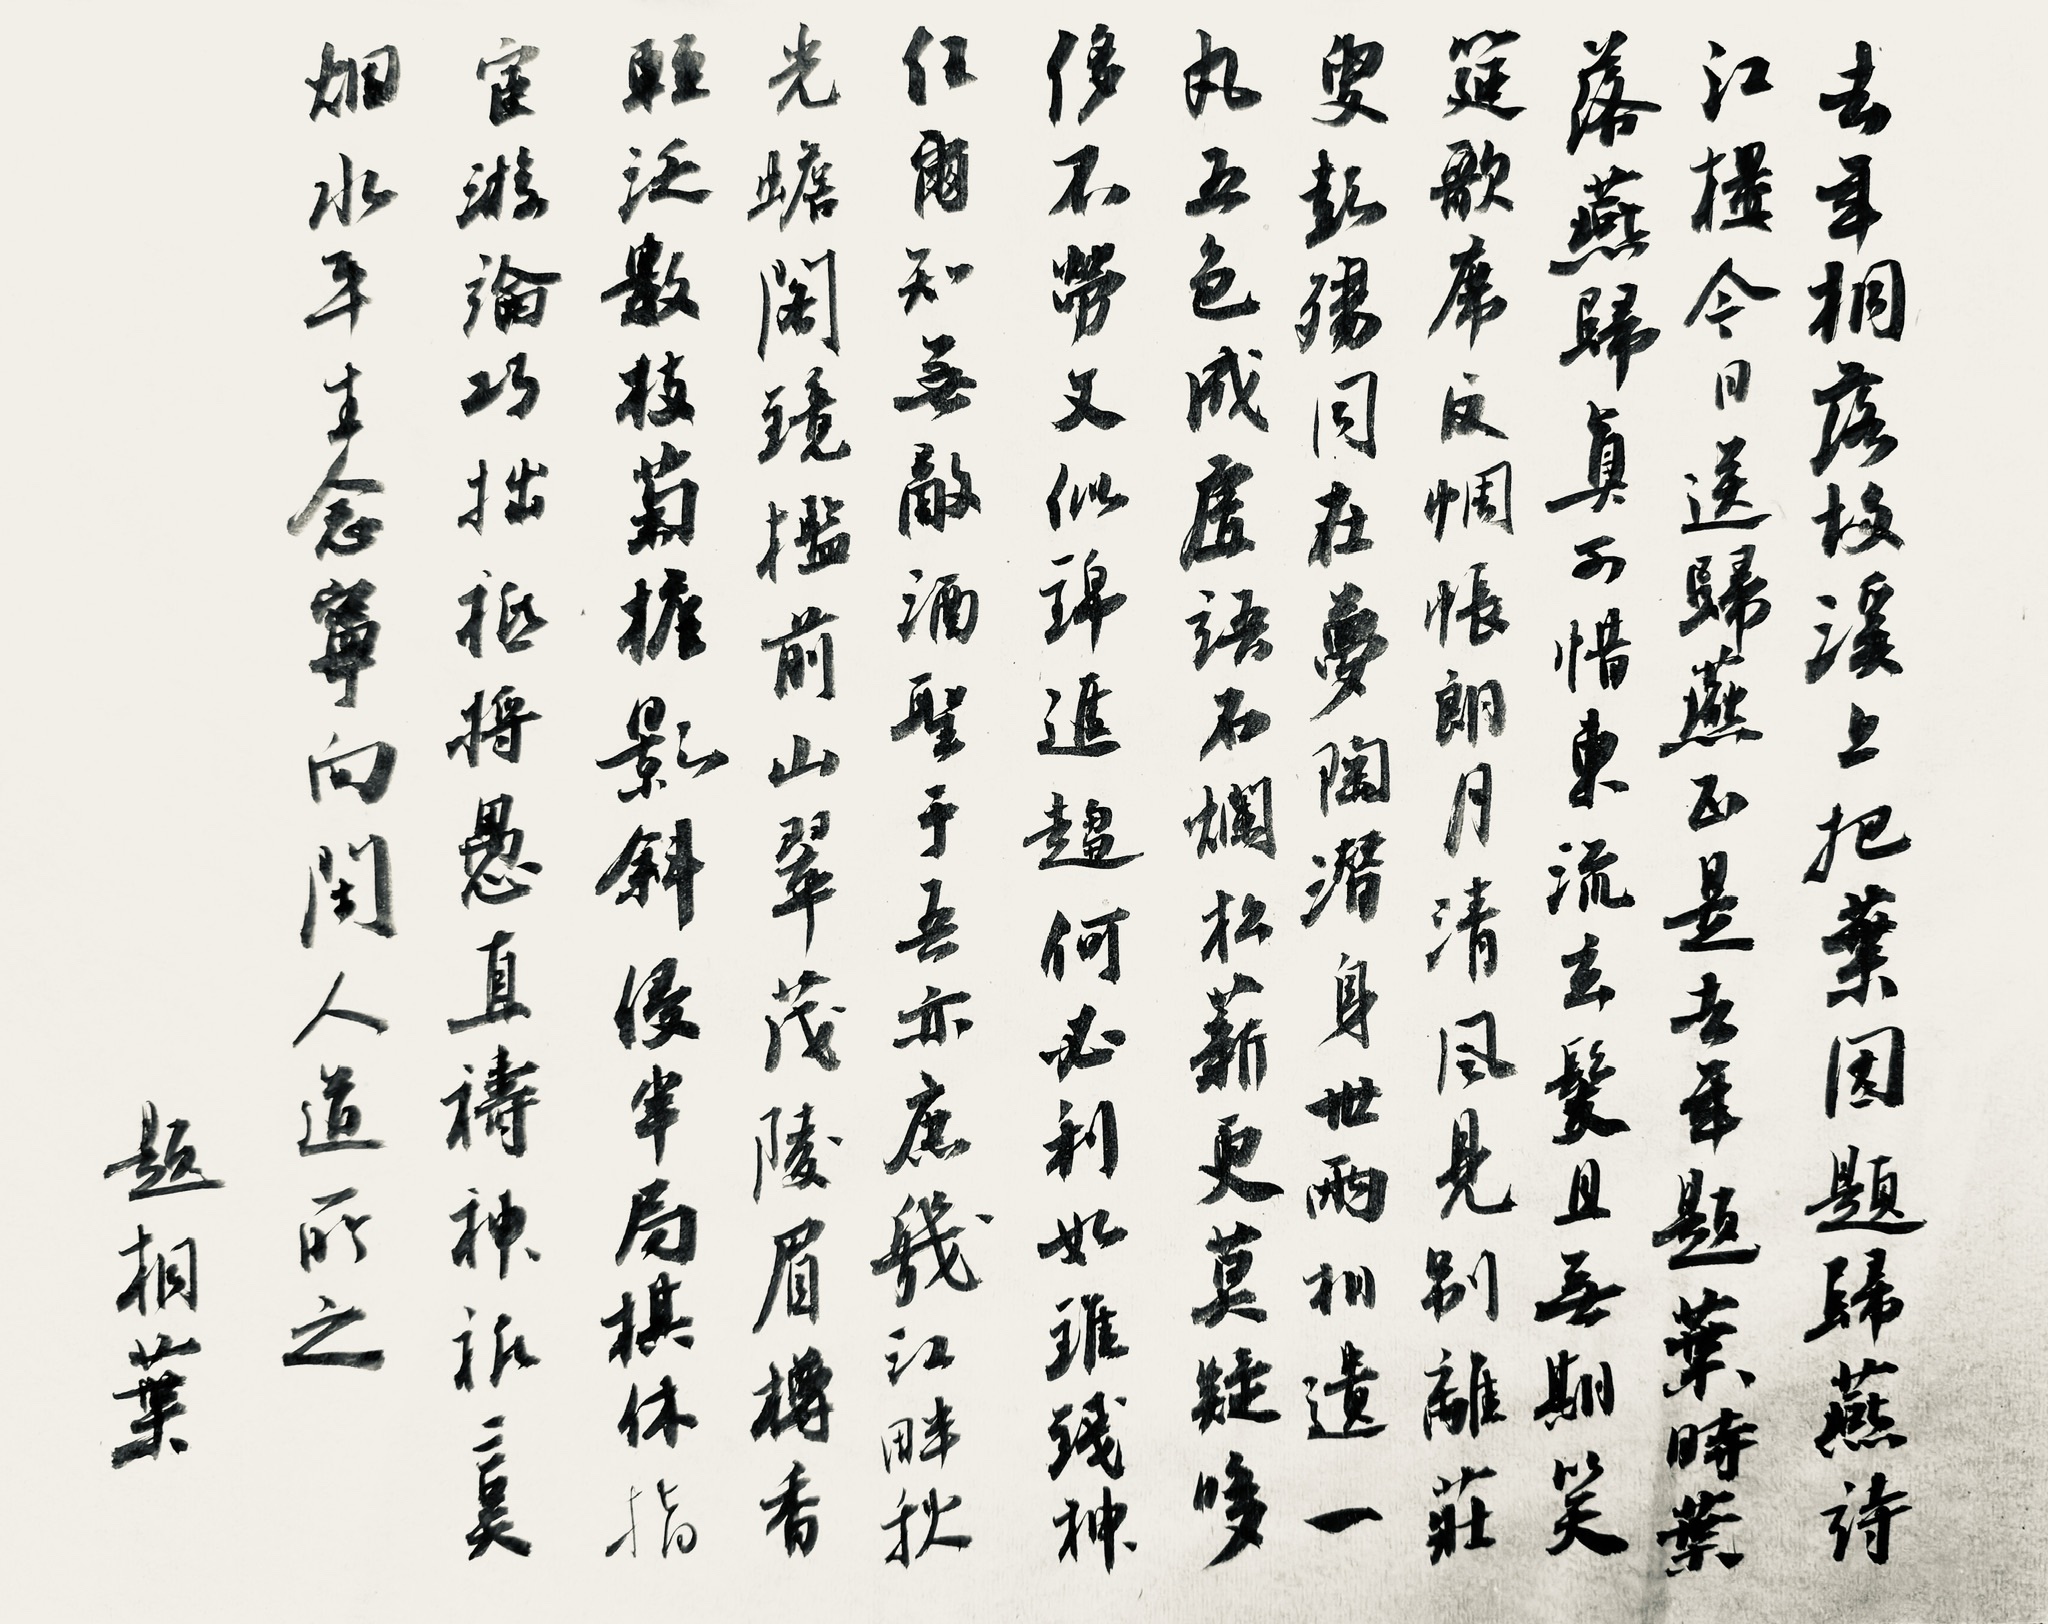 去年桐落故溪上把葉因題歸燕詩
江樓今日送歸燕正是去年題葉時葉
落燕歸真可惜東流玄髮且無期笑
筵歌席反惆悵朗月清風見別離莊
叟彭殤同在夢陶潛身世兩相遺一
丸五色成虛語石爛松薪更莫疑哆
侈不勞文似錦進趨何必利如錐錢神
任爾知無敵酒聖于吾亦庶幾江畔秋
光蟾閣鏡檻前山翠茂陵眉樽香
輕泛數枝菊檐影斜侵半局棋休指
宦游論巧拙祗將愚直禱神祇三吳
烟水平生念寧向閑人道所之
題桐葉